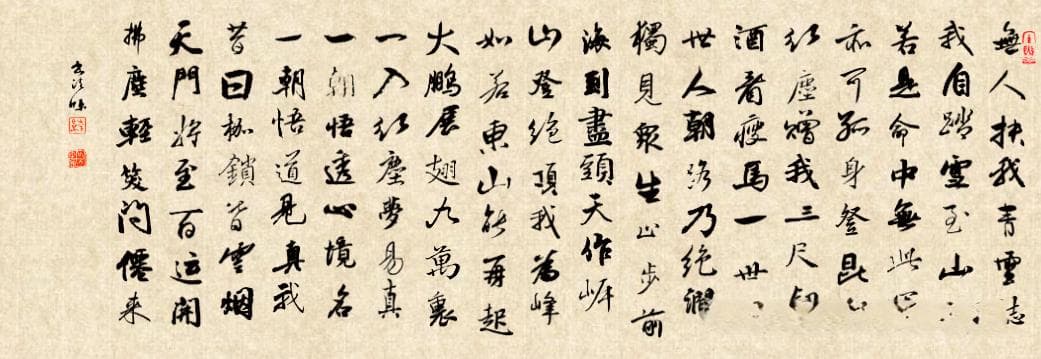 無人扶我青雲志
我自踏雪至山
若是命中無此
亦可孤身登昆
紅塵贈我三尺
酒看瘦馬一世
世人朝路乃絕澗
獨見衆生止步前
海到盡頭天作岸
山登絕頂我為峰
如若東山能再起
大鵬展翅九萬裏
一入紅塵夢易真
一朝悟透心境名
一朝悟道見真我
昔日枷鎖皆雲烟
天門將至百運開
拂塵輕笑問僊来